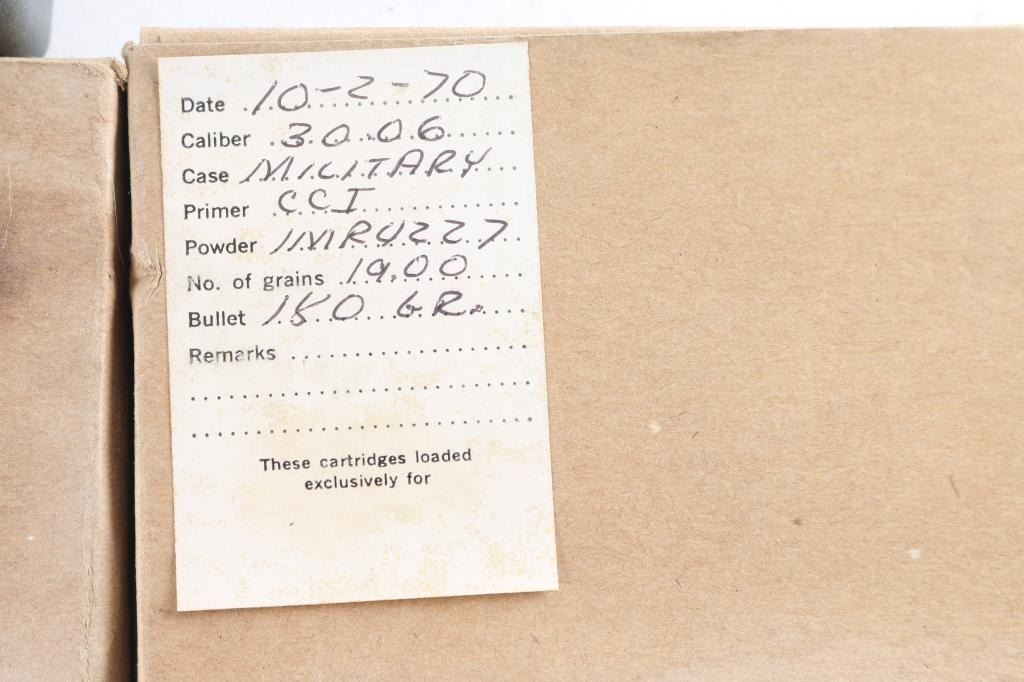 Date 10-2-70
Caliber 30.06
Case MILITARY
Primer CCI
Powder IMR4227
No. of grains 19.00
Bullet 150 GR.
Remarks
These cartridges loaded
exclusively for